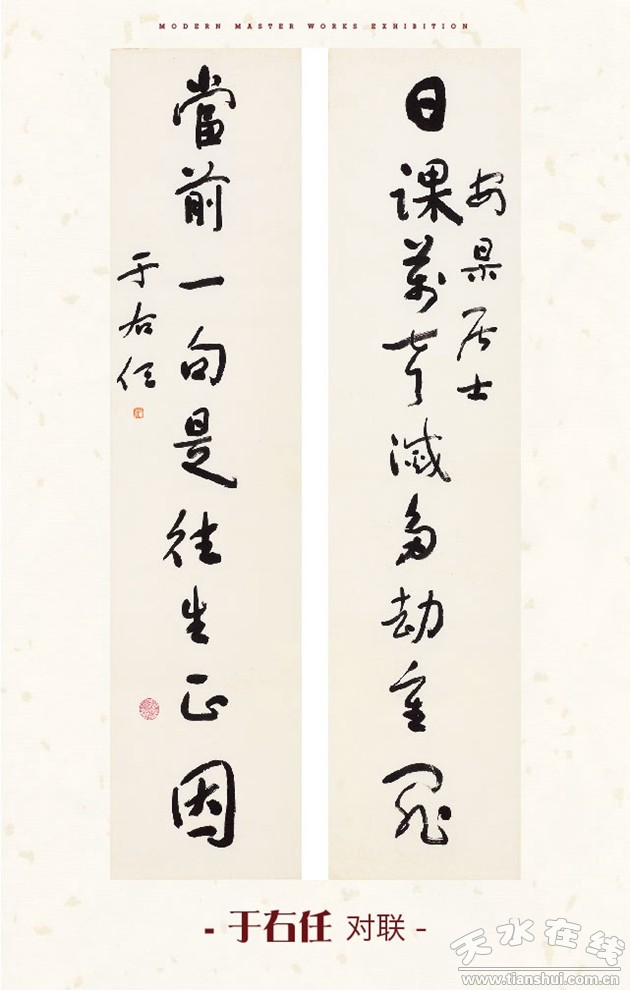 MODERN MASTER WORKS EXHIBITION
日課萬聲滅多劫重罪
安居士
當前一句是往生正因
于右任
- 于右任 对联 -
天水在线
www.tianshui.com.cn